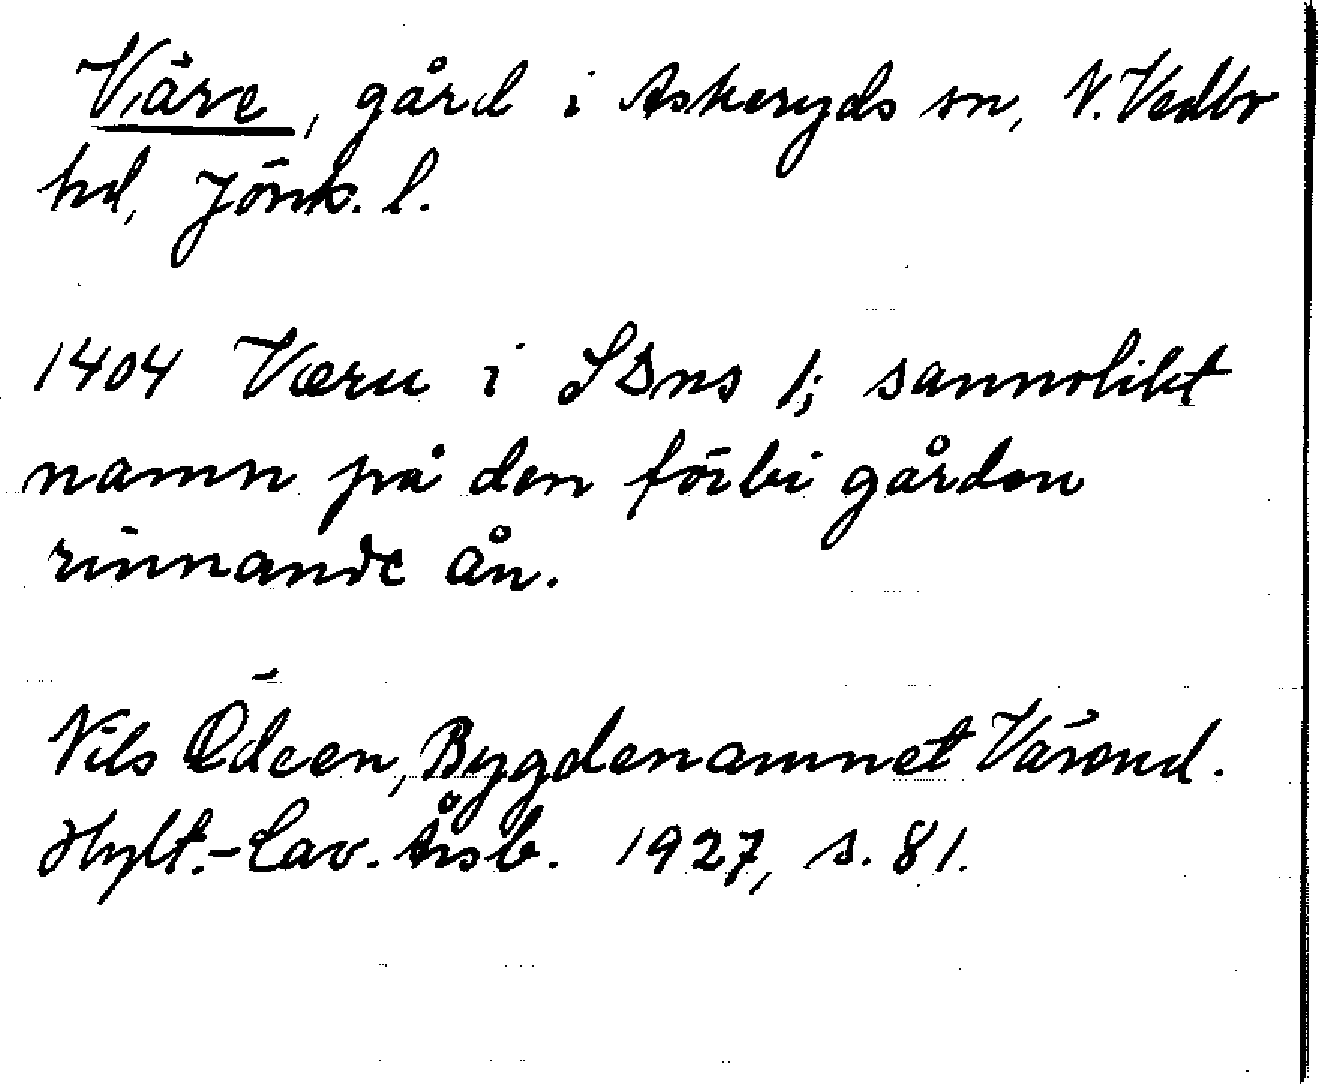 Väre, gård i Askeryds sn, N. Vedbo
hd, Jönk. l.
1404 Væru i SDns 1; sannolikt
namn på den förbi gården
rinnande ån.
Nils Ödeen, Bygdenamnet Värend.
Hylt.-Cav. Årsb. 1927, s. 81.